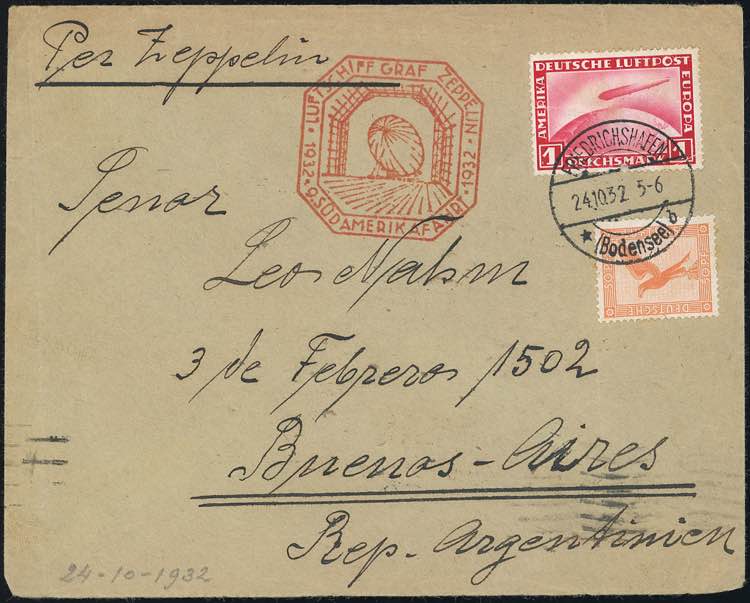 Per Zeppelin
LUFTSCHIFF GRAF ZEPPELIN
1932 • 9. SÜDAMERIKAFAHRT • 1932
DEUTSCHE LUFTPOST
AMERIKA
EUROPA
1 REICHSMARK 1
FRIEDRICHSHAFEN
24.10.32 5-6
(Bodensee) b
DEUTSCHE
Senor
Leo Nahm
3 de Febreros 1502
Buenos-Aires
Rep. Argentinien
24-10-1932